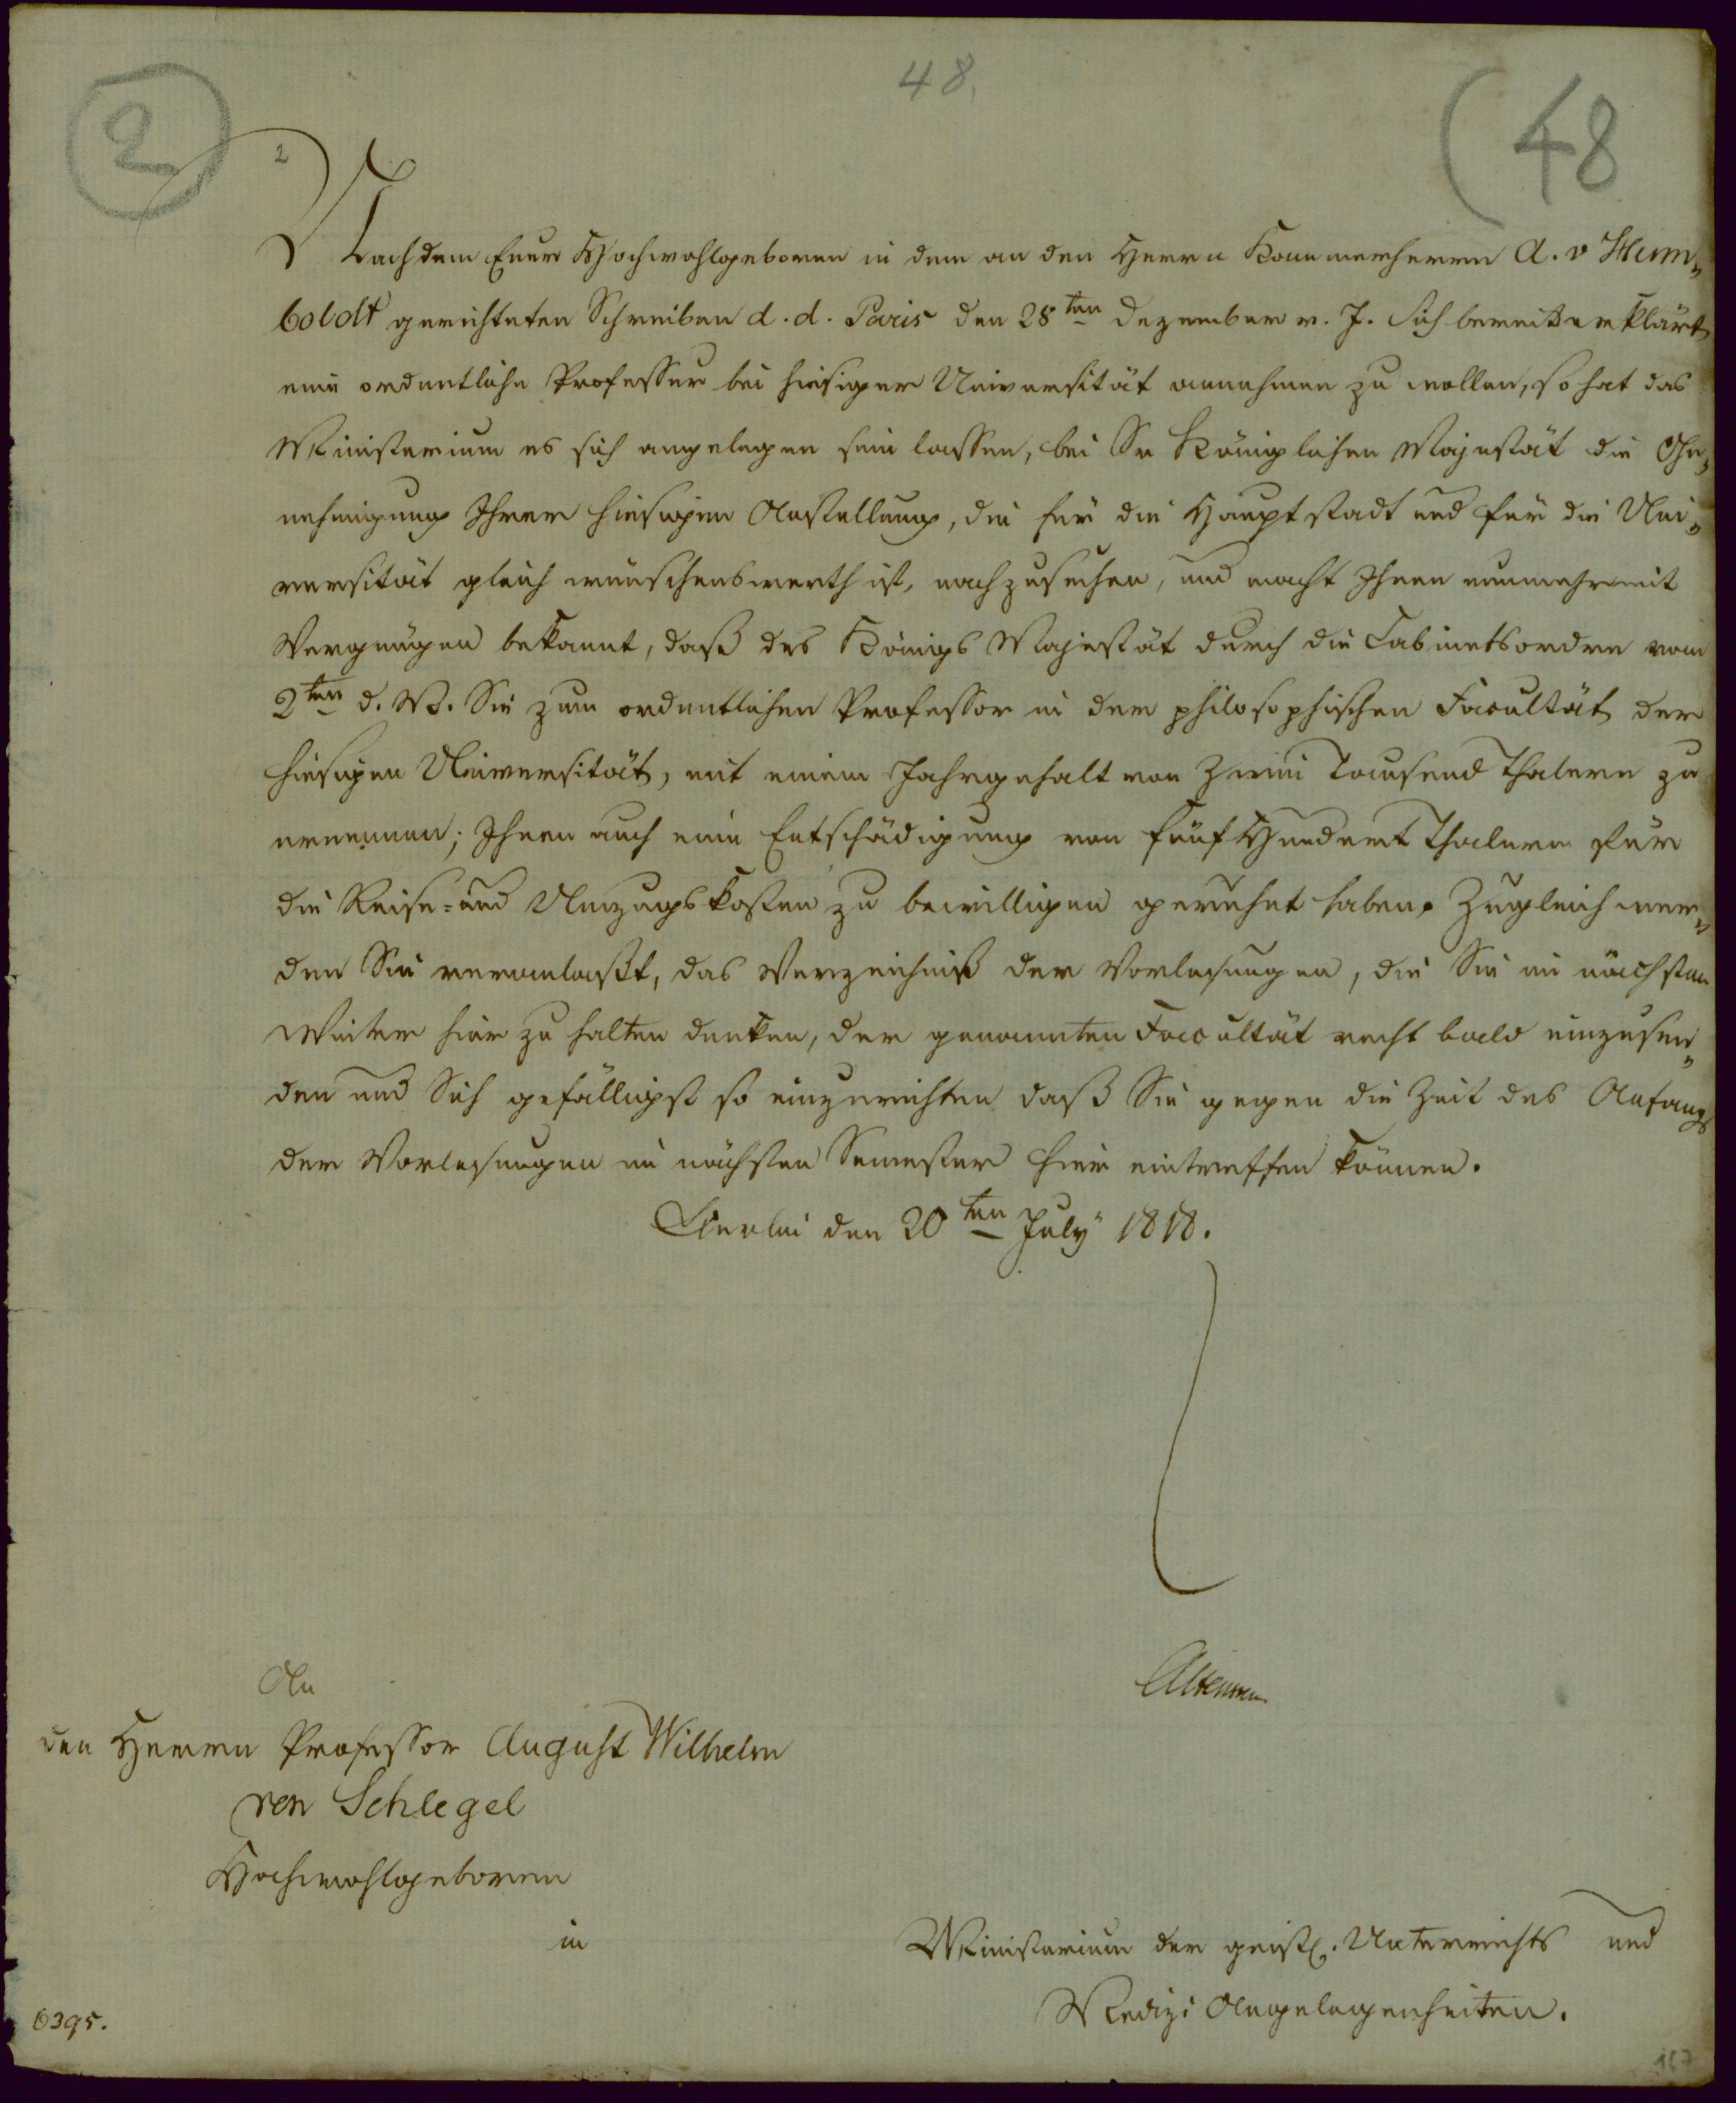 48.
2
(48
2
Nachdem Euer Hochwohlgeboren in dem an den Herrn Kammerherrn A. v Hum„
boldt gerichteten Schreiben d. d. Paris den 28ten Dezember v. J. Sich bereit erklärt
eine ordentliche Professur bei hiesiger Universität annehmen zu wollen, so hat das
Ministerium es sich angelegen sein lassen, bei Sr Königlichen Majestät die Ge„
nehmigung Ihrer hiesigen Anstellung, die für die Hauptstadt und für die Uni„
versität gleich wünschenswerth ist, nachzusuchen, und macht Ihnen nunmehr mit
Vergnügen bekannt, daß des Königs Majestät durch die Cabinetsordre vom
2ten d. M. Sie zum ordentlichen Professor in der philosophischen Facultät der
hiesigen Universität, mit einem Jahrgehalt von Zwei Tausend Thalern zu
ernennen; Ihnen auch eine Entschädigung von fünf Hundert Thalern für
die Reise- und Umzugskosten zu bewilligen geruhet haben. Zugleich wer„
den Sie veranlaßt, das Verzeichniß der Vorlesungen, die Sie im nächsten
Winter hier zu halten denken, der genannten Facultät recht bald einzusen„
den und Sich gefälligst so einzurichten daß Sie gegen die Zeit des Anfangs
der Vorlesungen im nächsten Semester hier eintreffen können.
Berlin den 20ten July 1818.
Altenstein
An
den Herrn Professor August Wilhelm
von Schlegel
Hochwohlgeboren
in
Ministerium der geistl. Unterrichts und
Medizi Angelegenheiten.
6395.
167